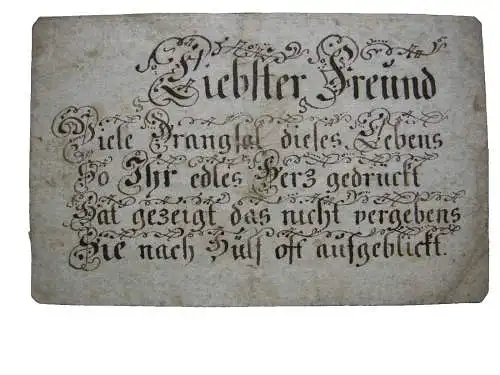 Liebster Freünd
Viele Drangsal dieses Lebens
So Ihr edles Herz gedruckt
Hat gezeigt das nicht vergebens
Sie nach Hülf oft aufgeblickt.